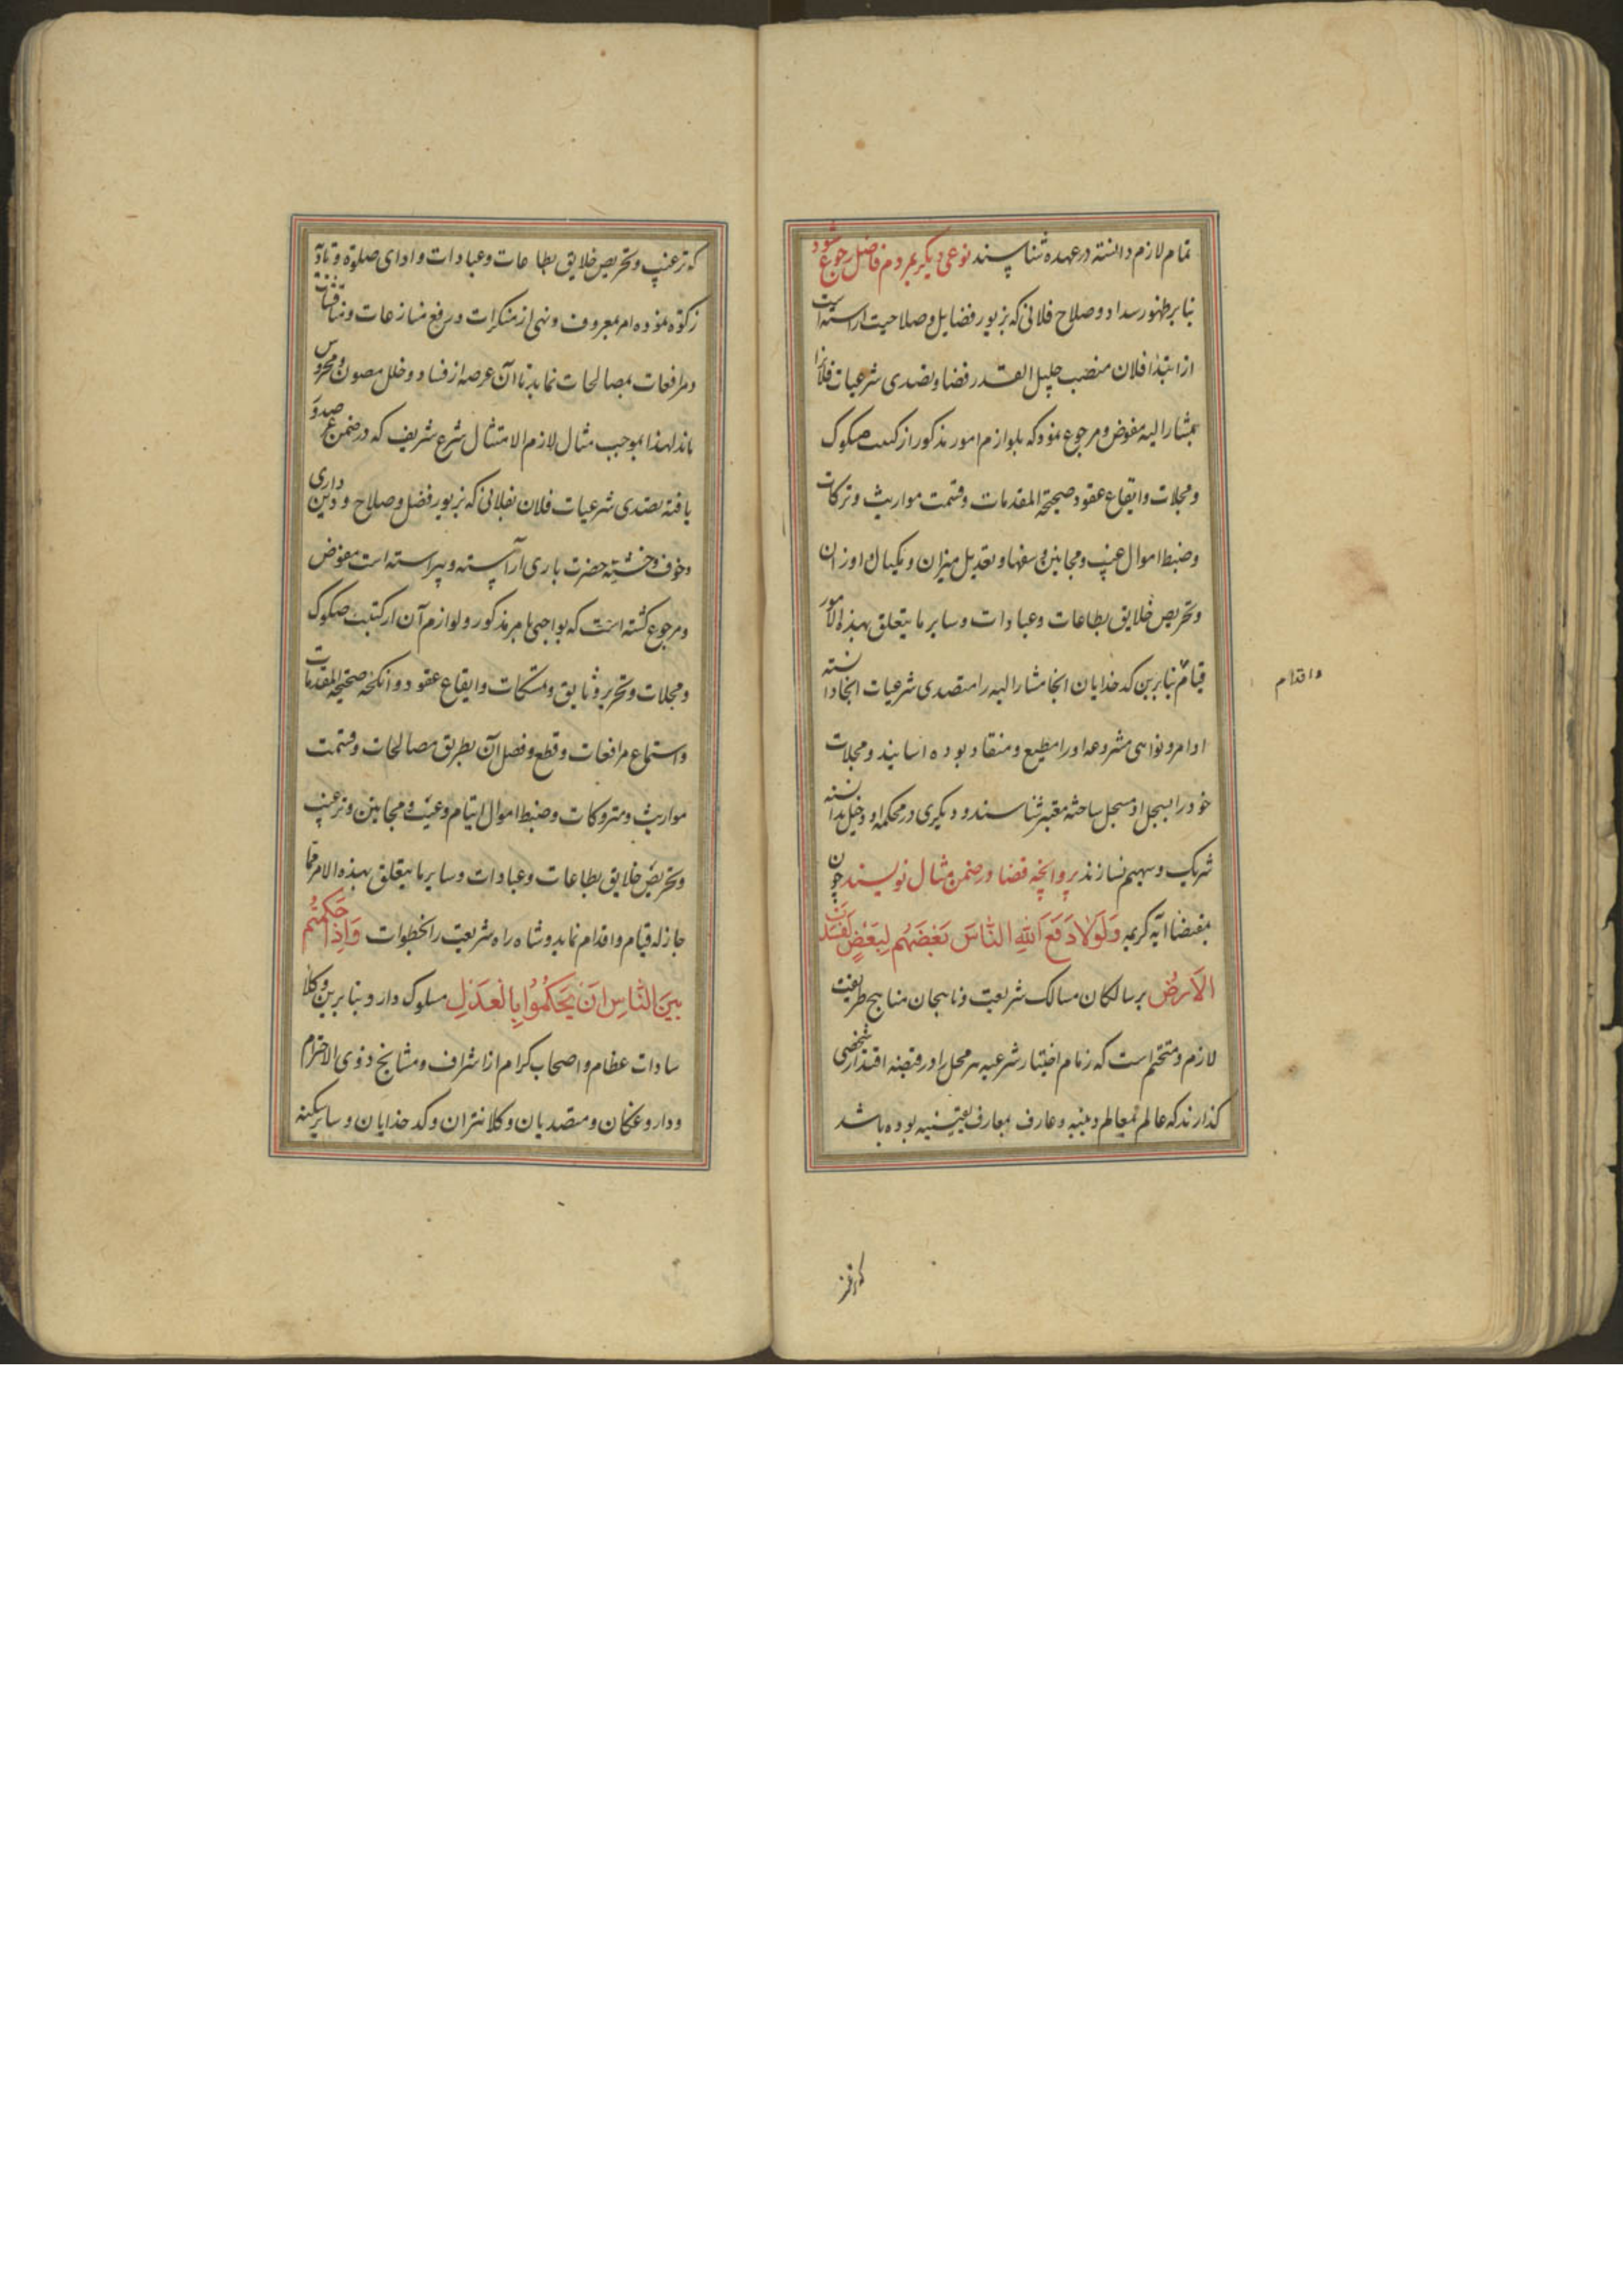 تمام لازم دانسته در عهده شناسند نوعی دیگر بمردم فاضل رجوع شود
بنابر ظهور سداد و صلاح فلانی که بزیور فضایل و صلاحیت اراسته است
از ابتدا فلان منصب جلیل القدر قضا و تصدی شرعیات فلانرا
بمشار الیه مفوض و مرجوع نمود که بلوازم امور مذکور از کتبت صکوک
و سجلات و ایقاع عقود صحیحة المقدمات و قسمت مواریث و ترکات
و ضبط اموال غیب و مجانین و سفها و تعدیل میزان و مکیال و اوزان
و تحریص خلایق بطاعات و عبادات و سایر ما یتعلق بهذه الامور
قیام بنابرین کدخدایان انجا مشار الیه را متصدی شرعیات انجا دانسته
و اقدام
اوامر و نواهی مشروعه او را مطیع و منقاد بوده و سجلات
خود را بسجل او مسجل ساخته معتبر شناسند و دیگری در محکمه او دخیل ندانسته
شریک و سهیم نسازند پروانچه قضا در ضمن مثال نویسند چون
بمقتضا ایه کریمه وَلَوْلَا دَفْعُ اللهِ النَّاسَ بَعْضَهُم بِبَعْضٍ لَفَسَدَتِ
الْاَرْضُ بر سالکان مسالک شریعت و ناهجان مناهج طریقت
لازم و متحتم است که زمام اختیار شرعیه هر محل را در قبضه اقتدار شخصی
گذارند که عالم بمعالم دینیه و عارف بمعارف یقینیه بوده باشد
که ترغیب و تحریص خلایق بطاعات و عبادات و ادای صلوة و تادیه
زکوة نموده امر بمعروف و نهی از منکرات و رفع منازعات و مناقشات
و مرافعات بمصالحات نماید تا آن عرصه از فساد و خلل مصون و محروس
ماند لهذا بموجب مثال لازم الامتثال شرع شریف که در ضمن عز صدور
یافته تصدی شرعیات فلان بفلانی که بزیور فضل و صلاح و دین داری
و خوف و خشیة حضرت باری آراسته و پیراسته است مفوض
و مرجوع گشته است که بواجبی بامر مذکور و لوازم آن از کتبت صکوک
و سجلات و تحریر وثایق و تمسکات و ایقاع عقود و انکحه صحیحة المقدمات
و استماع مرافعات و قطع و فصل آن بطریق مصالحات و قسمت
مواریث و متروکات و ضبط اموال ایتام و غیب و مجانین و ترغیب
و تحریض خلایق بطاعات و عبادات و سایر ما یتعلق بهذه الامر مما
جاز له قیام و اقدام نماید و شاه راه شریعت را بخطوات وَاِذَا حَكَمْتُمْ
بَيْنَ النَّاسِ اَنْ تَحْكُمُوا بِالْعَدْلِ مسلوک دارد بنابرین وکلا
سادات عظام و اصحاب کرام از اشراف و مشایخ ذوی الاحترام
و داروغگان و متصدیان و کلانتران و کدخدایان و سایر سکنه